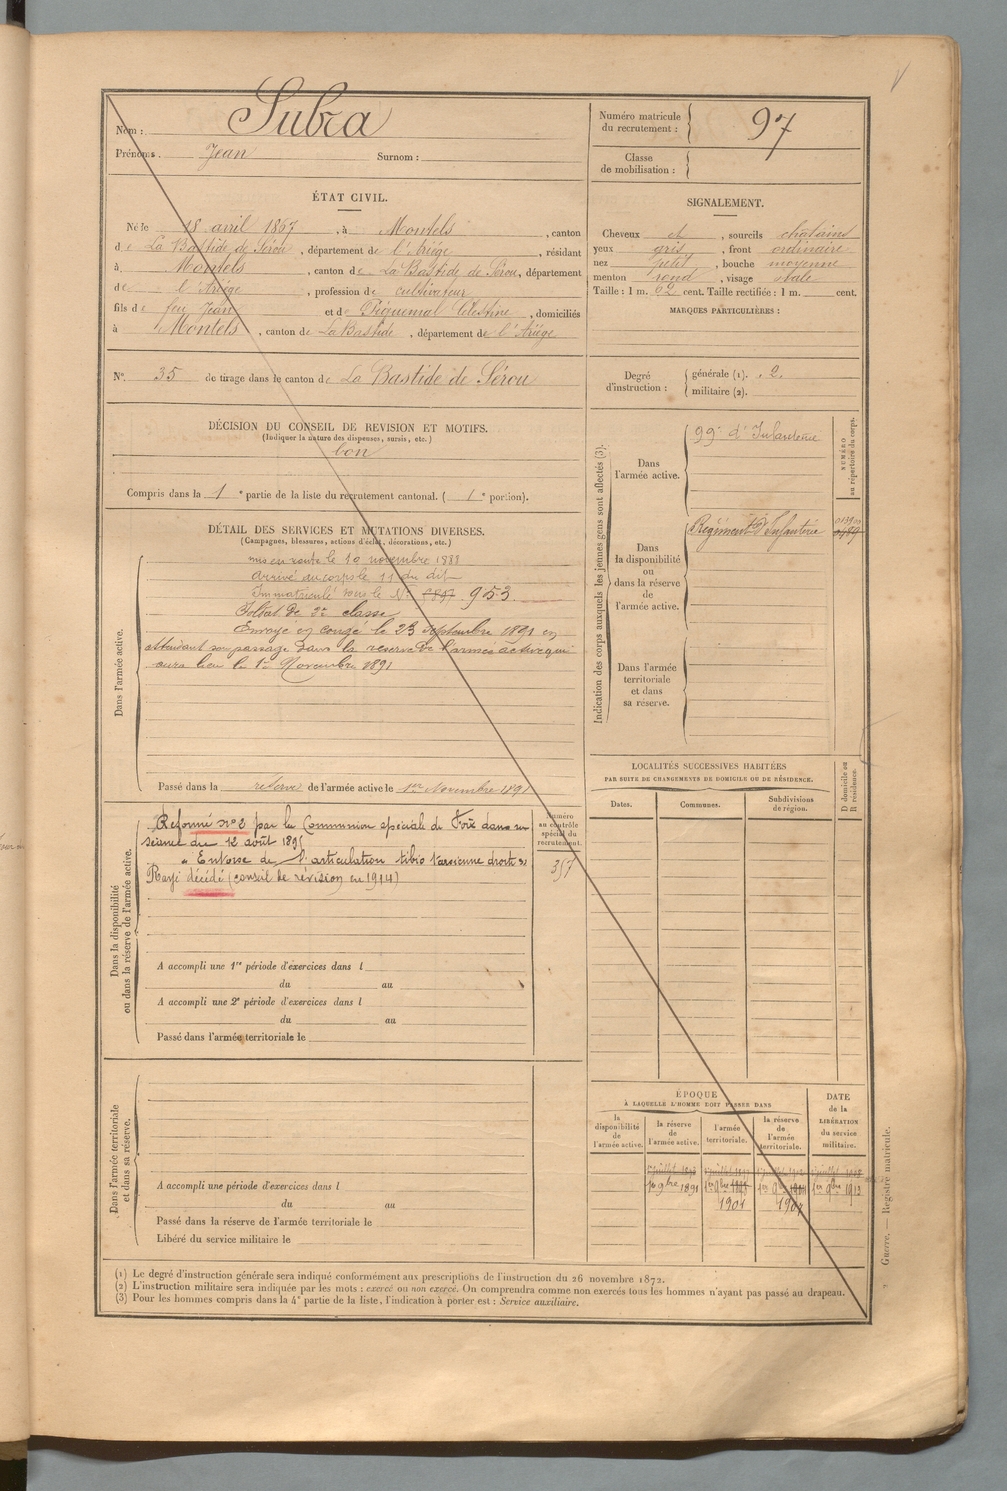 Nom : Subra
Prénoms. Jean Surnom :
Numéro matricule du recrutement : 97
Classe de mobilisation :
ÉTAT CIVIL.
Né le 18 avril 1867, à Montels, canton
de La Bastide de Sérou, département de l'Ariége, résidant
à Montels, canton de La Bastide de Sérou, département
de l'Ariége, profession de cultivateur
fils de feu Jean et de Piquemal Célestine, domiciliés
à Montels, canton de La Bastide, département de l'Ariége
SIGNALEMENT.
Cheveux et, sourcils chatains
yeux gris, front ordinaire
nez petit, bouche moyenne
menton rond, visage ovale
Taille : 1 m. 62 cent. Taille rectifiée : 1 m. cent.
MARQUES PARTICULIÈRES :
N° 35 de tirage dans le canton de La Bastide de Sérou
Degré d'instruction : générale (1). 2.
militaire (2).
DÉCISION DU CONSEIL DE REVISION ET MOTIFS.
(Indiquer la nature des dispenses, sursis, etc.)
bon
Compris dans la 1e partie de la liste du recrutement cantonal. (1e portion).
DÉTAIL DES SERVICES ET MUTATIONS DIVERSES.
(Campagnes, blessures, actions d'éclat, décorations, etc.)
Dans l'armée active.
mis en route le 10 novembre 1888
Arrivé au corps le 11 du dit
Immatriculé sous le N° 953
Soldat de 2e classe
Envoyé en congé le 23 septembre 1891 en
attendant son passage dans la réserve de l'armée active qui
aura lieu le 1er Novembre 1891
Passé dans la réserve de l'armée active le 1er Novembre 1891
Dans la disponibilité ou dans la réserve de l'armée active.
Réformé n°2 par la Commission spéciale de Foix dans sa
séance du 12 août 1895
Entorse de l'articulation tibio tarsienne droite
Rayé décédé (conseil de révision en 1914)
Numéro au contrôle spécial du recrutement.
357
A accompli une 1re période d'exercices dans l
du au
A accompli une 2e période d'exercices dans l
du au
Passé dans l'armée territoriale le
Dans l'armée territoriale et dans sa réserve.
A accompli une période d'exercices dans l
du au
Passé dans la réserve de l'armée territoriale le
Libéré du service militaire le
Indication des corps auxquels les jeunes gens sont affectés (3).
Dans l'armée active.
99e d'Infanterie
NUMÉRO au répertoire du corps.
Dans la disponibilité ou dans la réserve de l'armée active.
Régiment d'Infanterie
Dans l'armée territoriale et dans sa réserve.
LOCALITÉS SUCCESSIVES HABITÉES
PAR SUITE DE CHANGEMENTS DE DOMICILE OU DE RÉSIDENCE.
D domicile ou R résidence.
Dates. Communes. Subdivisions de région.
ÉPOQUE
À LAQUELLE L'HOMME DOIT PASSER DANS
la disponibilité de l'armée active.
la réserve de l'armée active.
l'armée territoriale.
la réserve de l'armée territoriale.
DATE de la LIBÉRATION du service militaire.
1er 9bre 1891
1901
1907
1er 9bre 1913
(1) Le degré d'instruction générale sera indiqué conformément aux prescriptions de l'instruction du 26 novembre 1872.
(2) L'instruction militaire sera indiquée par les mots : exercé ou non exercé. On comprendra comme non exercés tous les hommes n'ayant pas passé au drapeau.
(3) Pour les hommes compris dans la 4e partie de la liste, l'indication à porter est : Service auxiliaire.
Guerre. — Registre matricule.